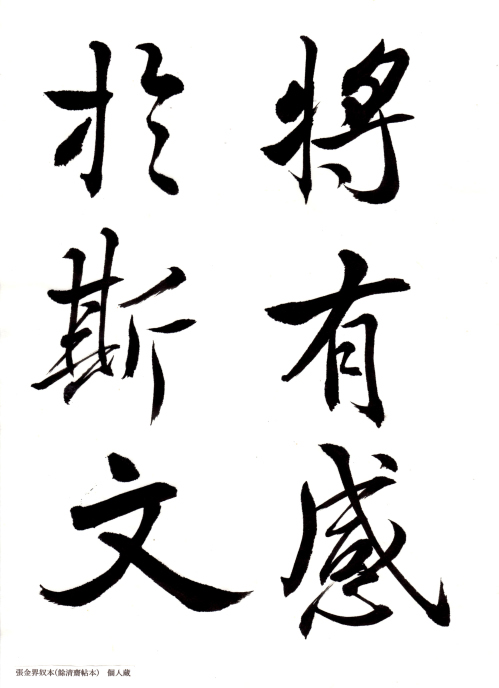 將有感
於斯文
張金界奴本(餘清齋帖本) 個人蔵